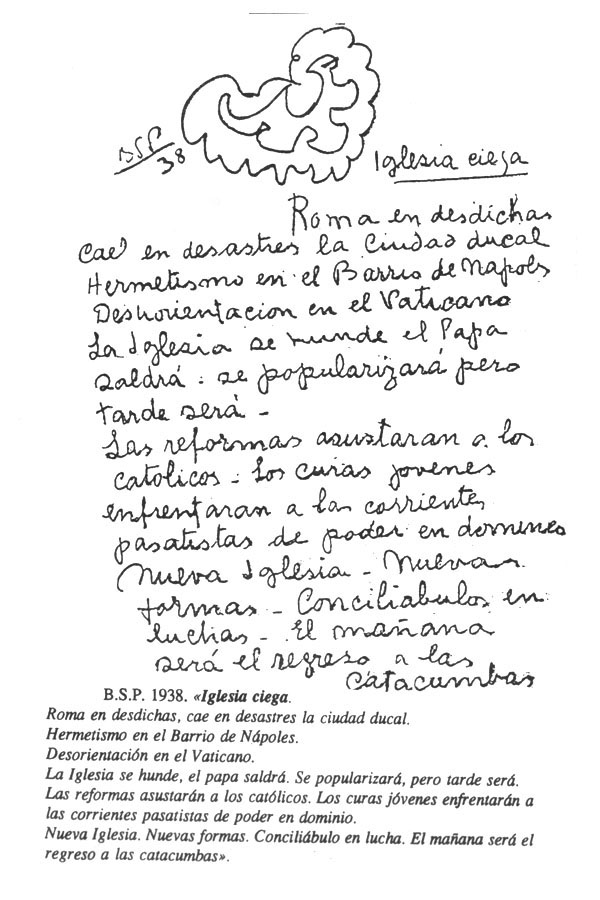 B.S.P.
38
Iglesia ciega
Roma en desdichas
Cae en desastres la Ciudad ducal
Hermetismo en el Barrio de Napoles
Deshorientacion en el Vaticano
La Iglesia se hunde el Papa
saldrá : se popularizará pero
tarde será -
Las reformas asustaran a los
catolicos - Los curas jovenes
enfrentaran a las corrientes
pasatistas de poder en domines
Nueva Iglesia - Nuevas
formas - Conciliabulos en
luchas - El mañana
será el regreso a las
catacumbas
B.S.P. 1938. «Iglesia ciega.
Roma en desdichas, cae en desastres la ciudad ducal.
Hermetismo en el Barrio de Nápoles.
Desorientación en el Vaticano.
La Iglesia se hunde, el papa saldrá. Se popularizará, pero tarde será.
Las reformas asustarán a los católicos. Los curas jóvenes enfrentarán a
las corrientes pasatistas de poder en dominio.
Nueva Iglesia. Nuevas formas. Conciliábulo en lucha. El mañana será el
regreso a las catacumbas».